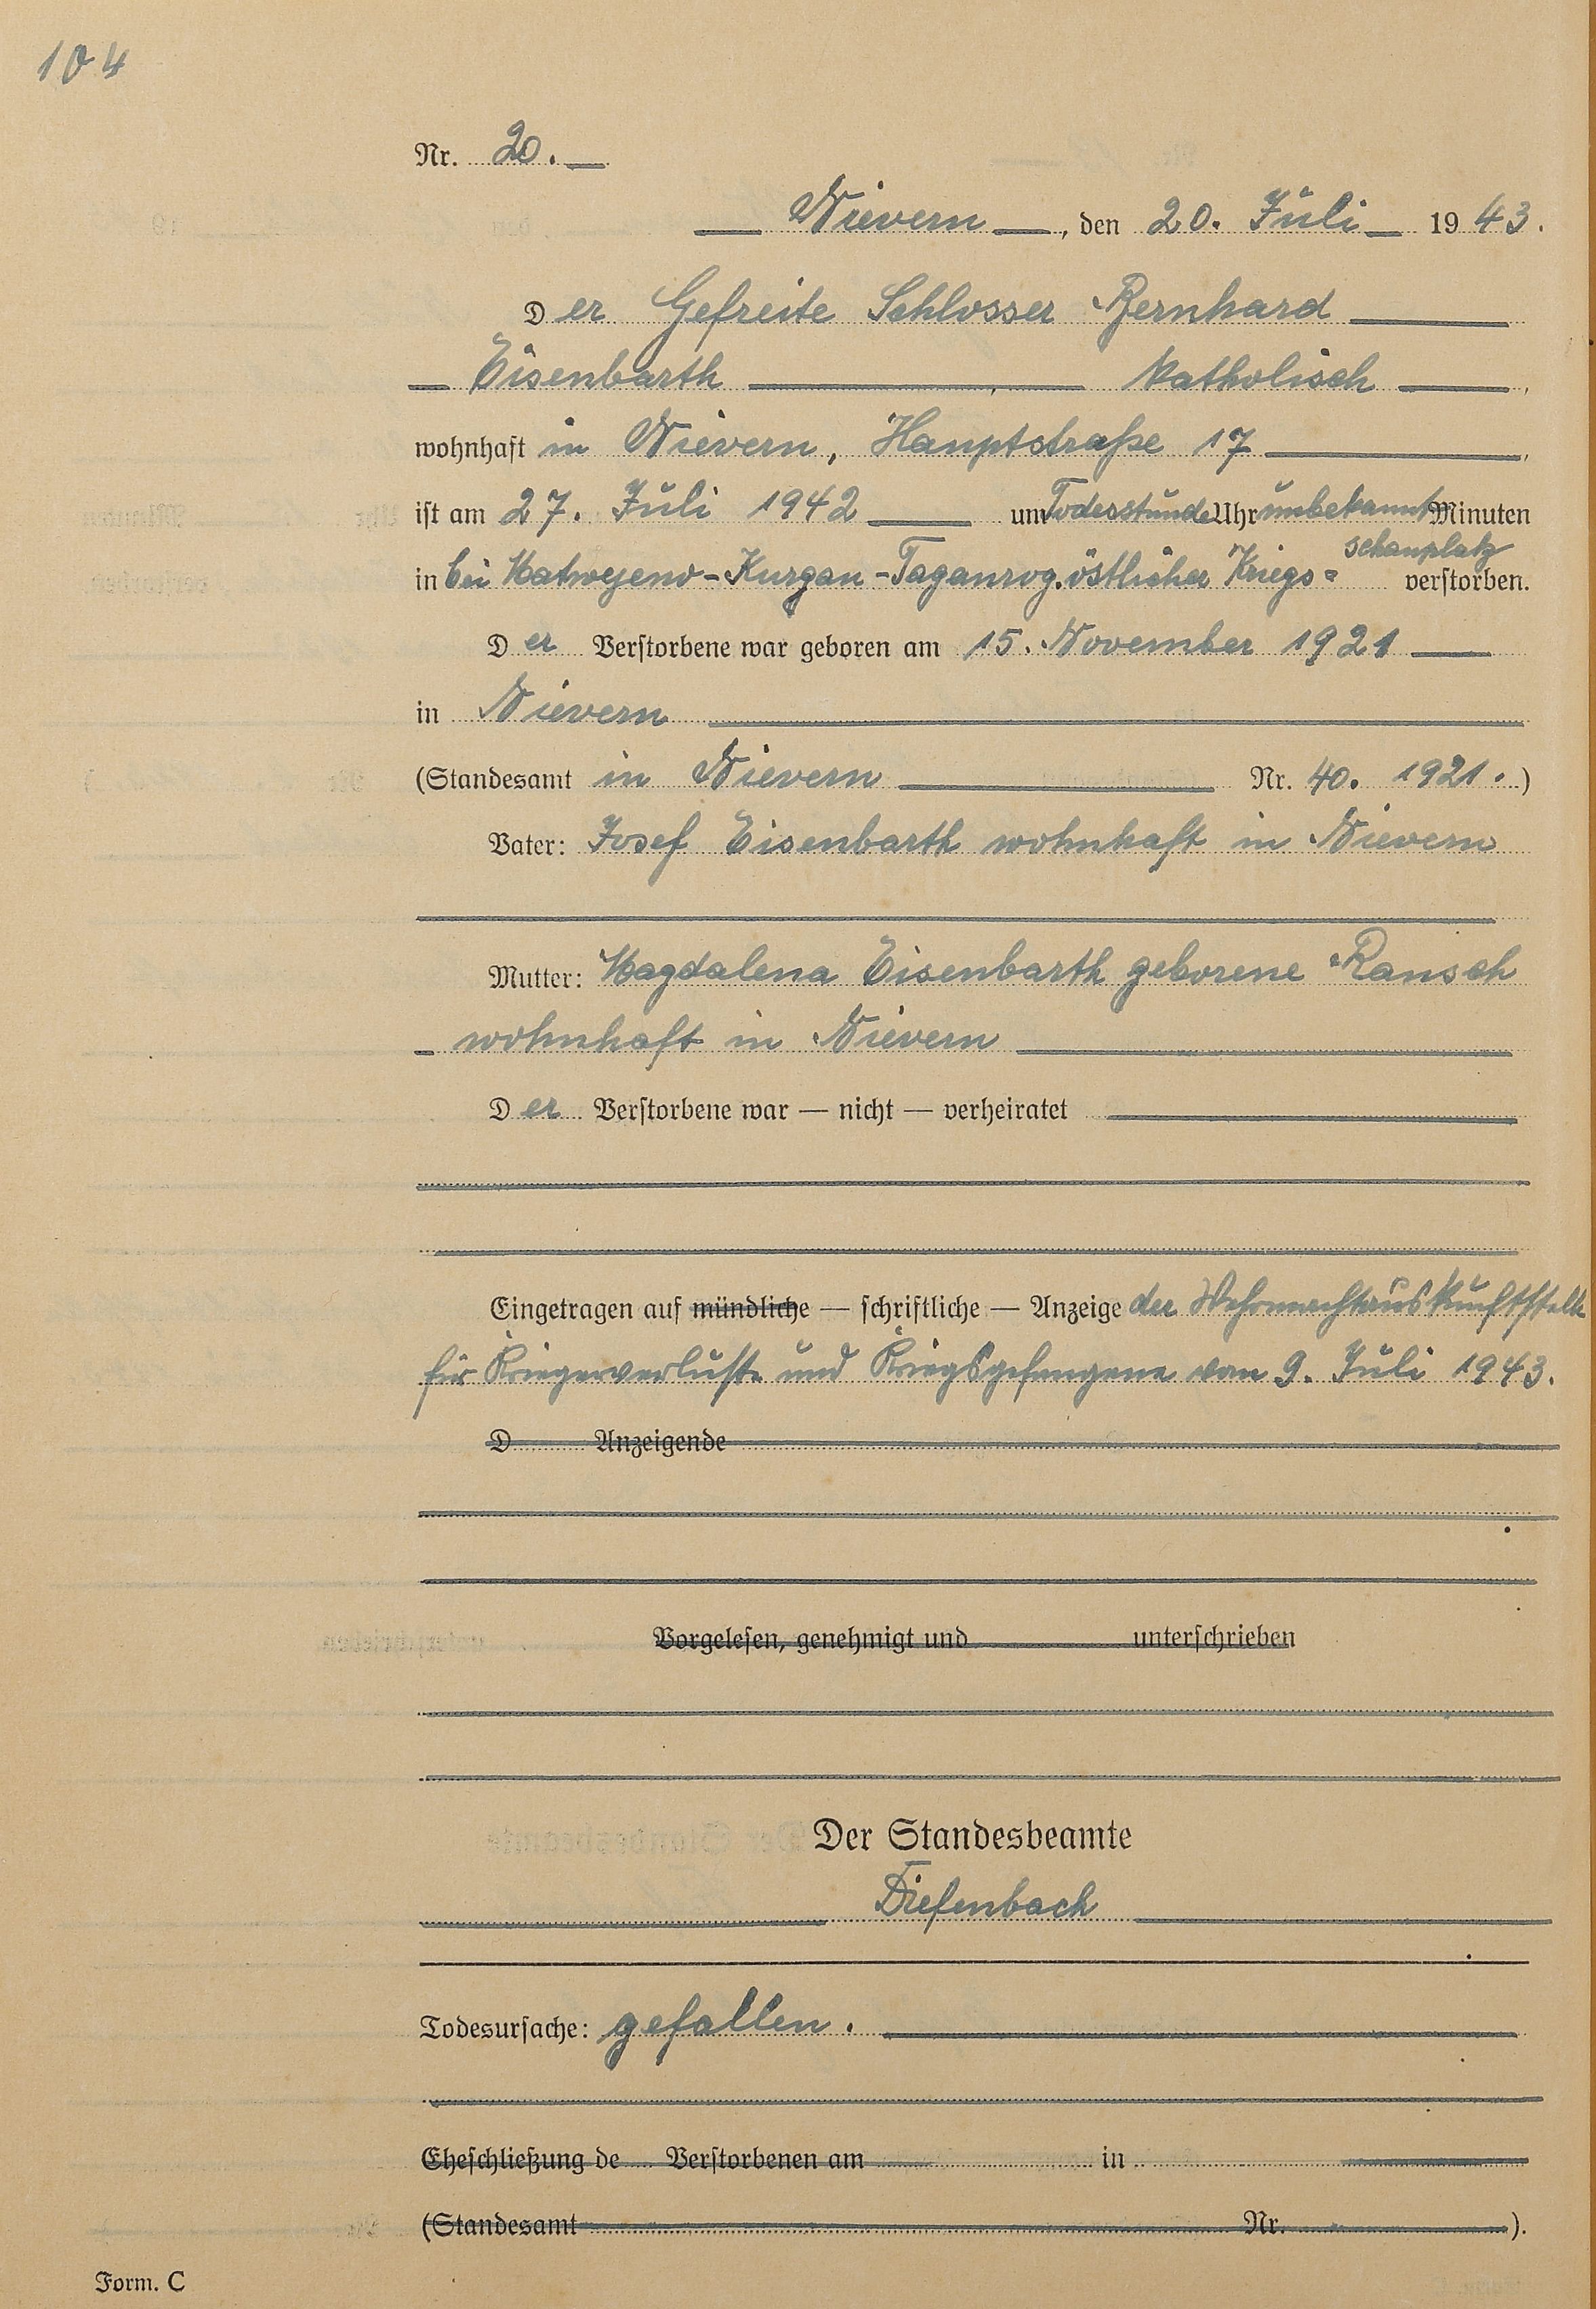 104
Nr. 20.
Nievern, den 20. Juli 1943.
Der Gefreite Schlosser Bernhard
Eisenbarth, katholisch,
wohnhaft in Nievern, Hauptstraße 17,
ist am 27. Juli 1942 um Todesstunde Uhr unbekannt Minuten
schauplatz
in bei Matwejeno-Kurgan-Taganrog. östlicher Kriegs= verstorben.
Der Verstorbene war geboren am 15. November 1921
in Nievern
(Standesamt in Nievern Nr. 40. 1921.)
Vater: Josef Eisenbarth wohnhaft in Nievern
Mutter: Magdalena Eisenbarth geborene Rausch
wohnhaft in Nievern
Der Verstorbene war — nicht — verheiratet
Eingetragen auf mündliche — schriftliche — Anzeige der Wehrmachtauskunftstelle
für Kriegerverluste und Kriegsgefangene vom 9. Juli 1943.
D Anzeigende
Vorgelesen, genehmigt und unterschrieben
Der Standesbeamte
Diefenbach
Todesursache: gefallen.
Eheschließung de Verstorbenen am in
(Standesamt Nr. ).
Form. C